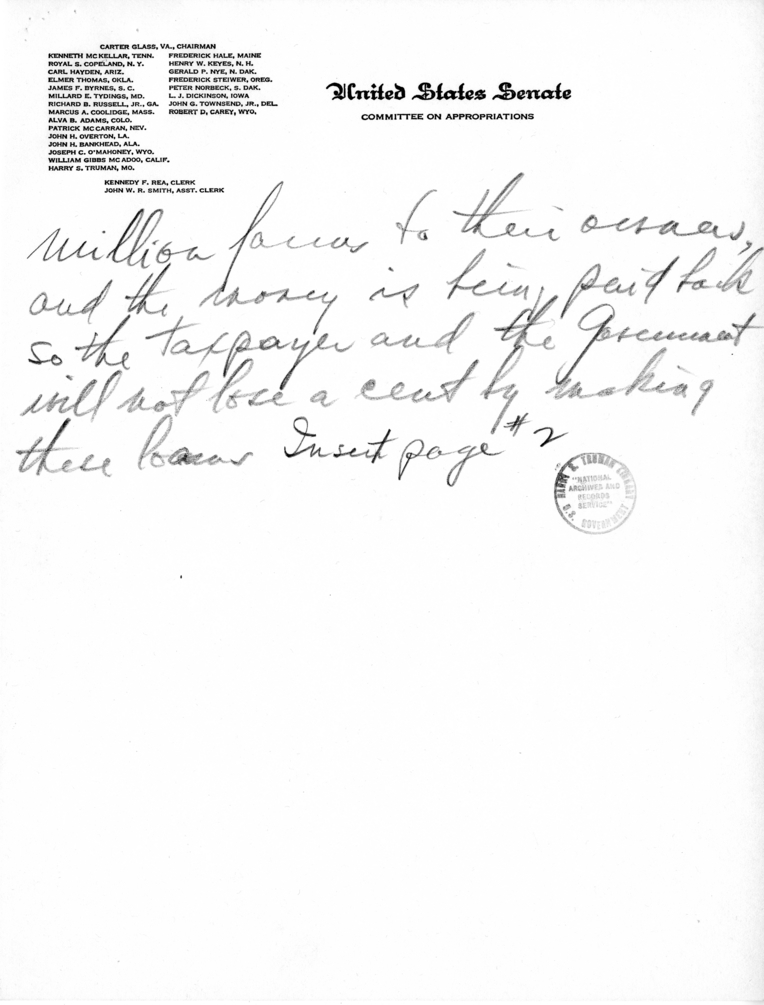 CARTER GLASS, VA., CHAIRMAN
KENNETH MCKELLAR, TENN.
ROYAL S. COPELAND, N. Y.
CARL HAYDEN, ARIZ.
ELMER THOMAS, OKLA.
JAMES F. BYRNES, S. C.
MILLARD E. TYDINGS, MD.
RICHARD B. RUSSELL, JR., GA.
MARCUS A. COOLIDGE, MASS.
ALVA B. ADAMS, COLO.
PATRICK MCCARRAN, NEV.
JOHN H. OVERTON, LA.
JOHN H. BANKHEAD, ALA.
JOSEPH C. O'MAHONEY, WYO.
WILLIAM GIBBS MCADOO, CALIF.
HARRY S. TRUMAN, MO.
FREDERICK HALE, MAINE
HENRY W. KEYES, N. H.
GERALD P. NYE, N. DAK.
FREDERICK STEIWER, OREG.
PETER NORBECK, S. DAK.
L. J. DICKINSON, IOWA
JOHN G. TOWNSEND, JR., DEL.
ROBERT D. CAREY, WYO.
KENNEDY F. REA, CLERK
JOHN W. R. SMITH, ASST. CLERK
United States Senate
COMMITTEE ON APPROPRIATIONS
million farms to their owners,
and the money is being paid back
so the taxpayer and the Government
will not lose a cent by making
these loans Insert page #2
HARRY S. TRUMAN LIBRARY
"NATIONAL
ARCHIVES AND
RECORDS
SERVICE"
U.S. GOVERNMENT